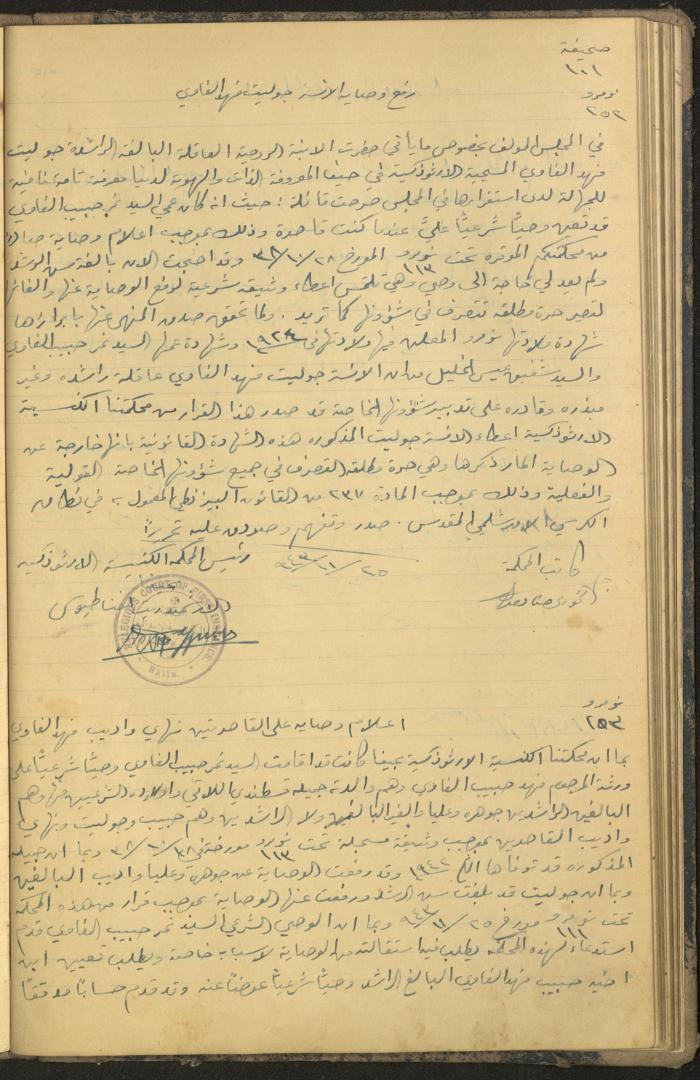 صحيفة
١٠١
نومرو
٢٥٢
رفع وصاية الانسة جوليت فهد الفاوي
في المجلس المؤلف بخصوص ما يأتي حضرت الانسة الروحية العاقلة البالغة الراشدة جوليت
فهد الفاوي المسيحية الارثوذكسية في حيفا المعروفة الذات والهوية لدينا معرفة تامة نافية
للجهالة لدى استقرارها في المجلس صرحت قائلة : حيث انه كان عمي السيد نمر حبيب الفاوي
قد تعين وصياً شرعياً علي عندما كنت قاصرة وذلك بموجب اعلام وصاية صادر
من محكمتكم الموقرة تحت نومرو ١١٣ المؤرخ ٢٨/١٠/٣٨ وقد اصبحت الان بالغة سن الرشد
ولم يعد لي حاجة الى وصي وهي تلتمس اعطاء وثيقة شرعية لرفع الوصاية عنها والغائها
لتصير حرة مطلقة تتصرف في شؤونها كما تريد . ولما تحقق صدق المنهى عنها بابرازها
شهادة ولادتها نومرو المعلن فيها ولادتها في ١٩٢٤ وشهادة عمها السيد نمر حبيب الفاوي
والسيد شفيق عيسى الخليل من ان الانسة جوليت فهد الفاوي عاقلة راشده وغير
مبذره وقادره على تدبير شؤونها الخاصة قد صدر هذا القرار من محكمتنا الكنسية
الارثوذكسية اعطاء الانسة جوليت المذكوره هذه الشهادة القانونية بانها خارجة عن
الوصاية المار ذكرها وهي حرة ومطلقة التصرف في جميع شؤونها الخاصة القولية
والفعلية وذلك بموجب المادة ٢٣٧ من القانون البيزنطي المعمول به في نطاق
الكرسي الاورشليمي المقدس . صدر وتفهم وصودق عليه تحريراً
٢٥/١١/٩٤٣
كاتب المحكمة
رئيس المحكمة الكنسية الارثوذكسية
الخوري حنا
الارشمندريت اغناطيوس
RELIGIOUS COURT OF FIRST INSTANCE
Haifa.
نومرو
٢٥٣
اعلام وصاية على القاصرتين نهاي واديب فهد الفاوي
بما ان محكمتنا الكنسية الارثوذكسية بحيفا كانت قد اقامت السيد نمر حبيب الفاوي وصياً شرعياً على
ورثة المرحوم فهد حبيب الفاوي وهم والدته جميله قسطندي اللاتي واولاده الشرعيين منها وهم
البالغين الراشدين جوهره وعليا والغير البالغين ولا الراشدين وهم حبيب وجوليت ونهاي
واديب القاصرين بموجب وثيقة مسجلة تحت نومرو ١١٣ مورخة في ٢٨/١٠/٣٨ وبما ان جميله
المذكوره قد توفاها الله ١٩٤٢ وقد رفعت الوصاية عن جوهره وعليا واديب البالغين
وبما ان جوليت قد بلغت سن الرشد ورفعت عنها الوصاية بموجب قرار من هذه المحكمة
تحت نومرو ١١١ مورخ ٢٥/١١/٩٤٣ وبما ان الوصي الشرعي السيد نمر حبيب الفاوي قدم
استدعاء لهذه المحكمة يطلب فيه استقالته من الوصاية لاسباب خاصة ويطلب تعيين ابن
اخيه حبيب فهد الفاوي البالغ الراشد وصياً شرعياً عوضاً عنه وقد قدم حساباً مدققاً